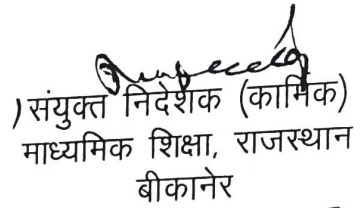 )संयुक्त निदेशक (कार्मिक)
माध्यमिक शिक्षा, राजस्थान
बीकानेर